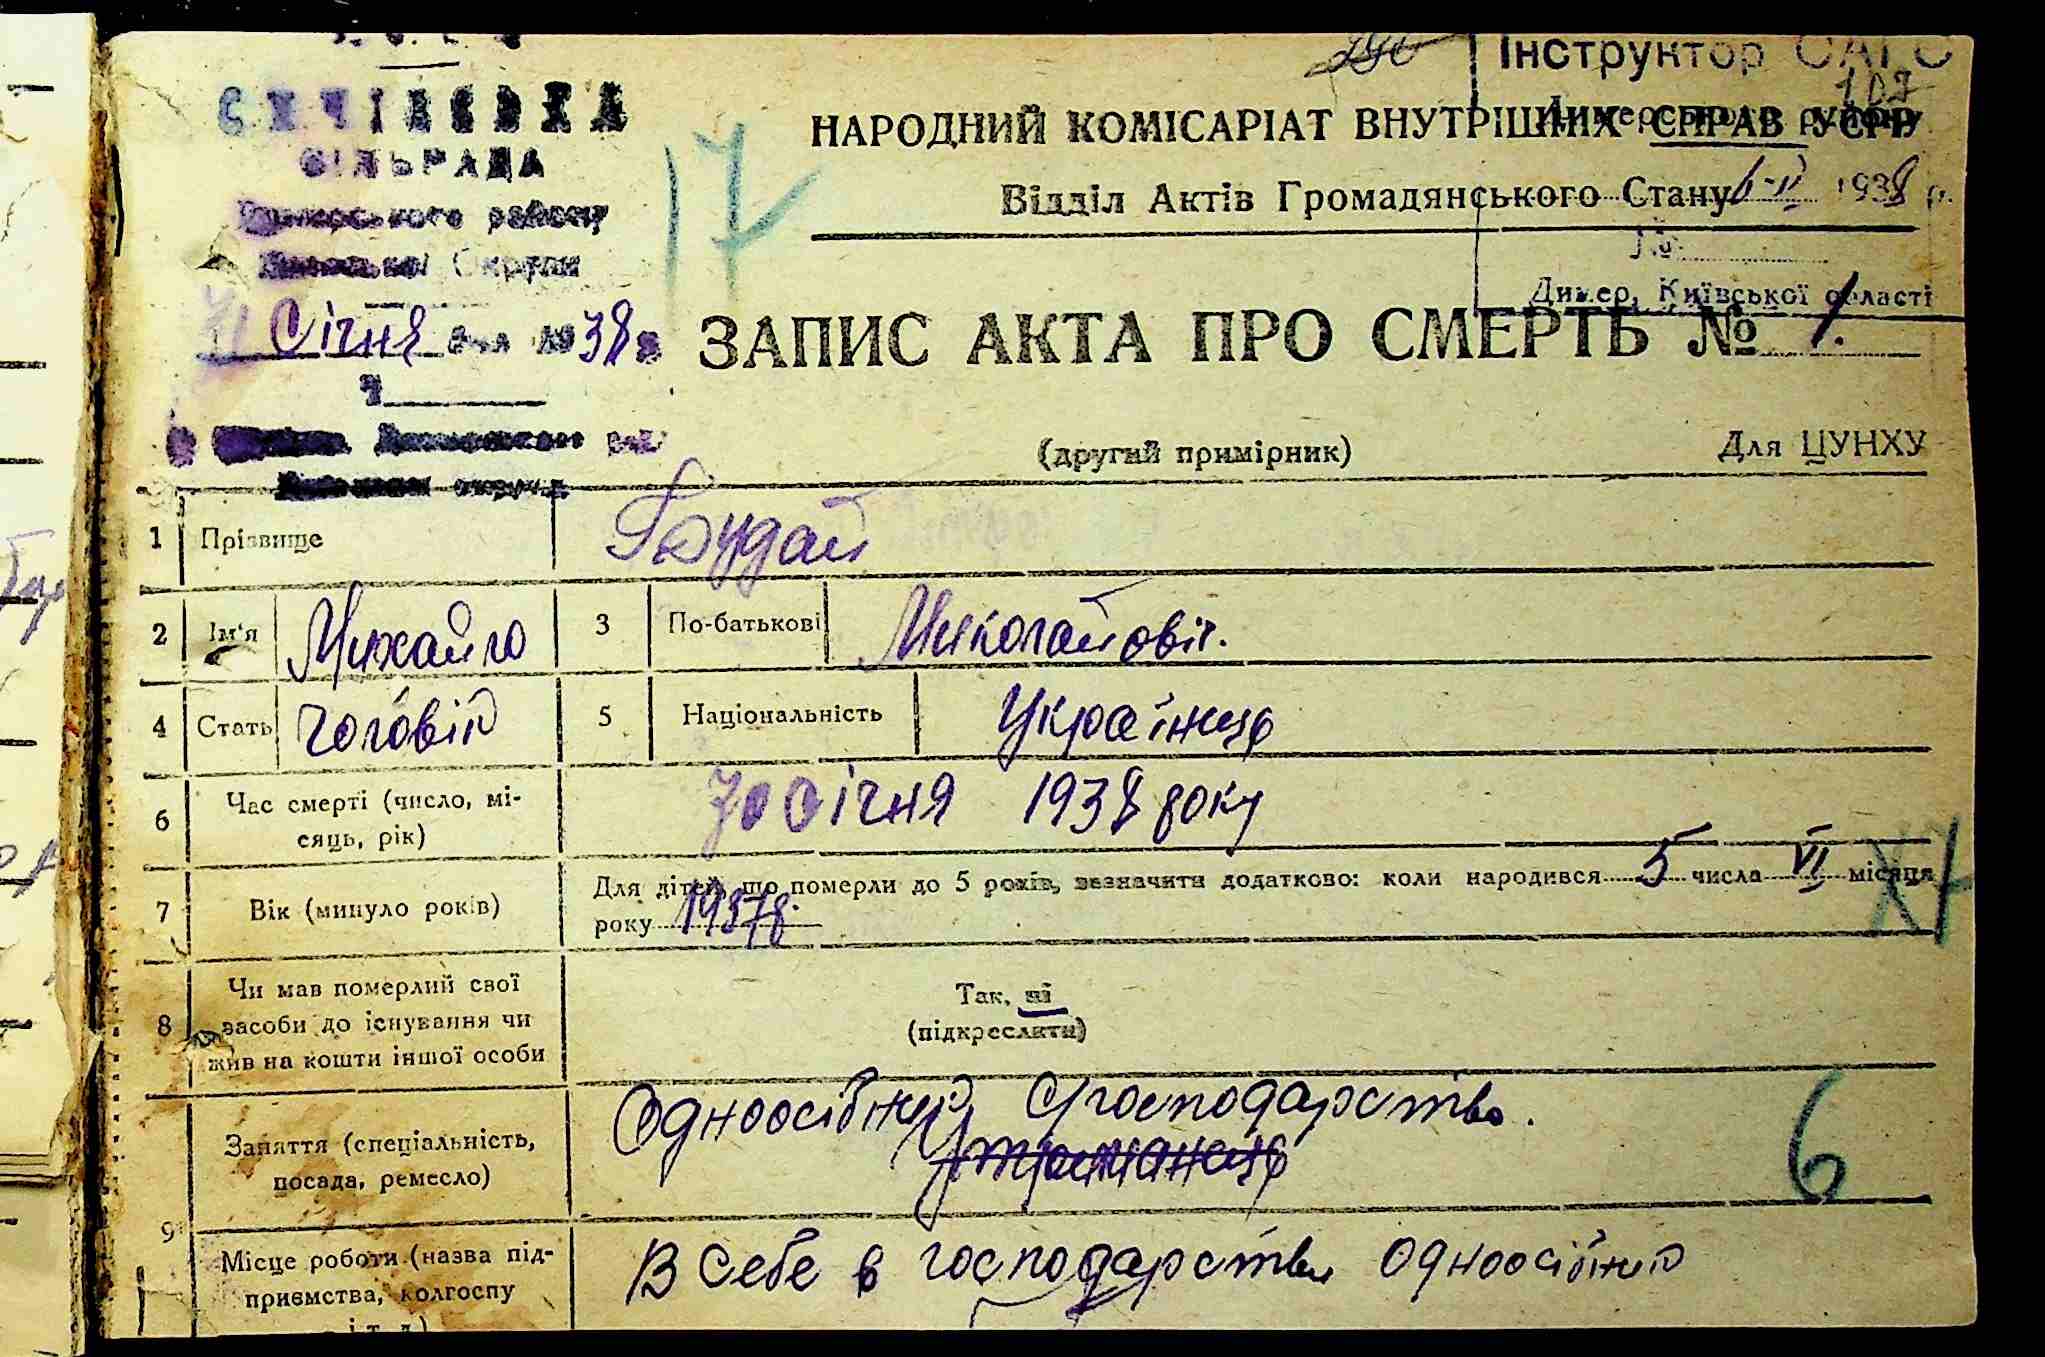 Інструктор САГС
107
Димерського району
НАРОДНИЙ КОМІСАРІАТ ВНУТРІШНІХ СПРАВ УСРР
Відділ Актів Громадянського Стану
6-ІІ 1938 р.
№
Димер, Київської області
СИЧІВСЬКА
СІЛЬРАДА
Димерського району
Київської Округи
Січня 1938 р
Ч
17
ЗАПИС АКТА ПРО СМЕРТЬ № 1.
(другий примірник)
Для ЦУНХУ
1 Прізвище Будай
2 Ім'я Михайло 3 По-батькові Миколайовіч.
4 Стать чоловік 5 Національність Українець
6 Час смерті (число, мі-
сяць, рік)
Січня 1938 року
7 Вік (минуло років)
Для дітей, що померли до 5 років, зазначити додатково: коли народився 5 числа VI місяця
року 1937р.
8 Чи мав померлий свої
засоби до існування чи
жив на кошти іншої особи
Так, ні
(підкреслити)
9 Заняття (спеціальність,
посада, ремесло)
Одноосібник Сгосподарство.
Утриманець
6
Місце роботи (назва під-
приємства, колгоспу
і т. д.)
В себе в господарстві одноосібник